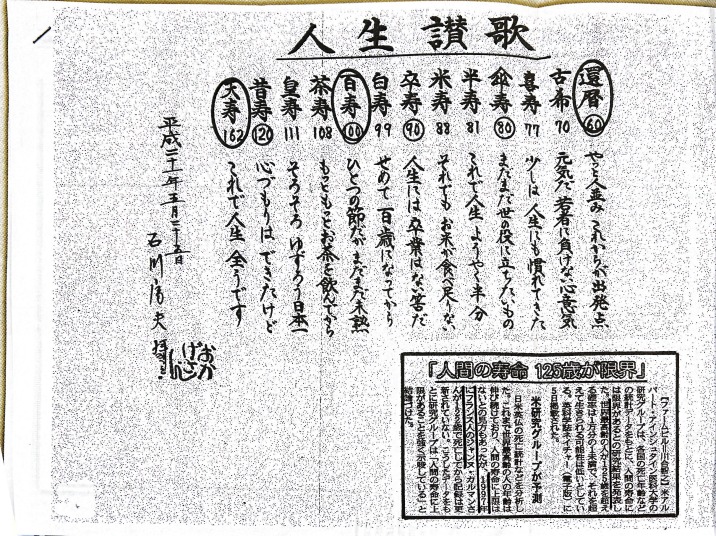 人生讃歌
還暦 60 やっと人並み これからが出発点
古希 70 元気だ 若者に負けない心意気
喜寿 77 少しは人生にも慣れてきた
傘寿 80 まだまだ世の役に立ちたいもの
半寿 81 これで人生 ようやく半分
米寿 88 それでも お米が食べ足りない
卒寿 90 人生には 卒業はない筈だ
白寿 99 せめて百歳になってから
百寿 100 ひとつの節だが まだまだ未熟
茶寿 108 もっともっとお茶を飲んでから
皇寿 111 そろそろ ゆずろう日本一
昔寿 120 心づもりは できたけど
天寿 162 これで人生 全うです
平成二十一年五月二十五日
石川
「人間の寿命 125歳が限界」
米研究グループが予測
米アル
バート・アインシュタイン医科大学の
研究グループは、各国の死亡年齢など
の統計データをもとに、人間の寿命に
は限界があるとの研究結果を発表し
た。世界最高齢の人が125歳を超え
る確率は1万分の1未満で、それを超
えて生きられる可能性は低いとしてい
る。英科学誌ネイチャー(電子版)に
5日掲載された。
日米英仏の死亡統計などを分析し
た。これまで世界最高齢の人の年齢は
伸び続けており、人間の寿命に上限は
ないとの見方もあったが、1997年
にフランス人のジャンヌ・カルマンさ
んが122歳で死亡してから記録は更
新されていない。こうしたデータをも
とに研究グループは「人間の寿命に上
限があることを強く示唆している」と
結論づけた。